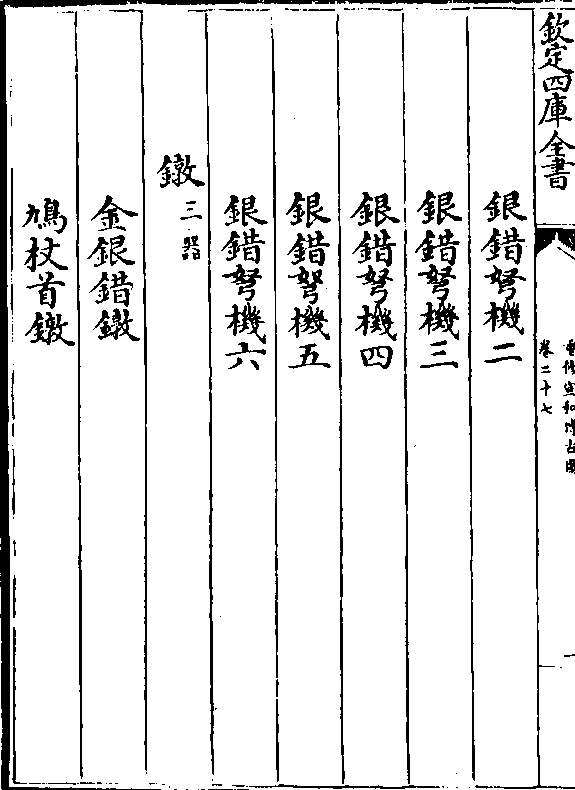 欽定四庫全書
重修宣和博古圖
卷二十七
銀錯弩機二
銀錯弩機三
銀錯弩機四
銀錯弩機五
銀錯弩機六
鐓三器
金銀錯鐓
鳩杖首鐓